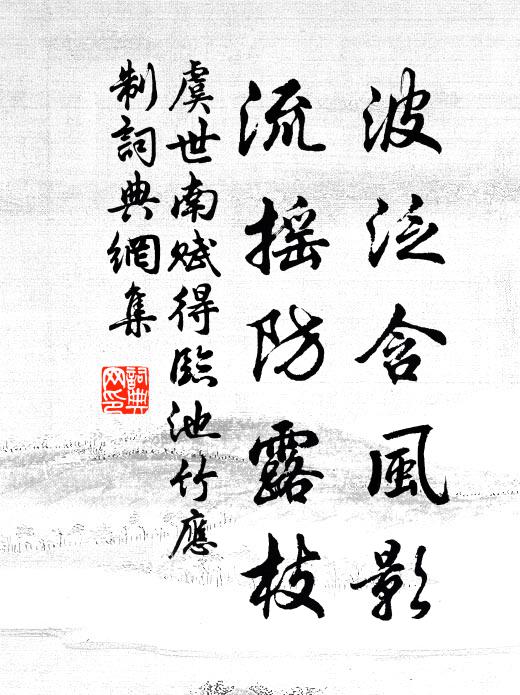 波泛含風影
流摇防露枝
虞世南賦得臨池竹應
制詞典網集
詞典
网印